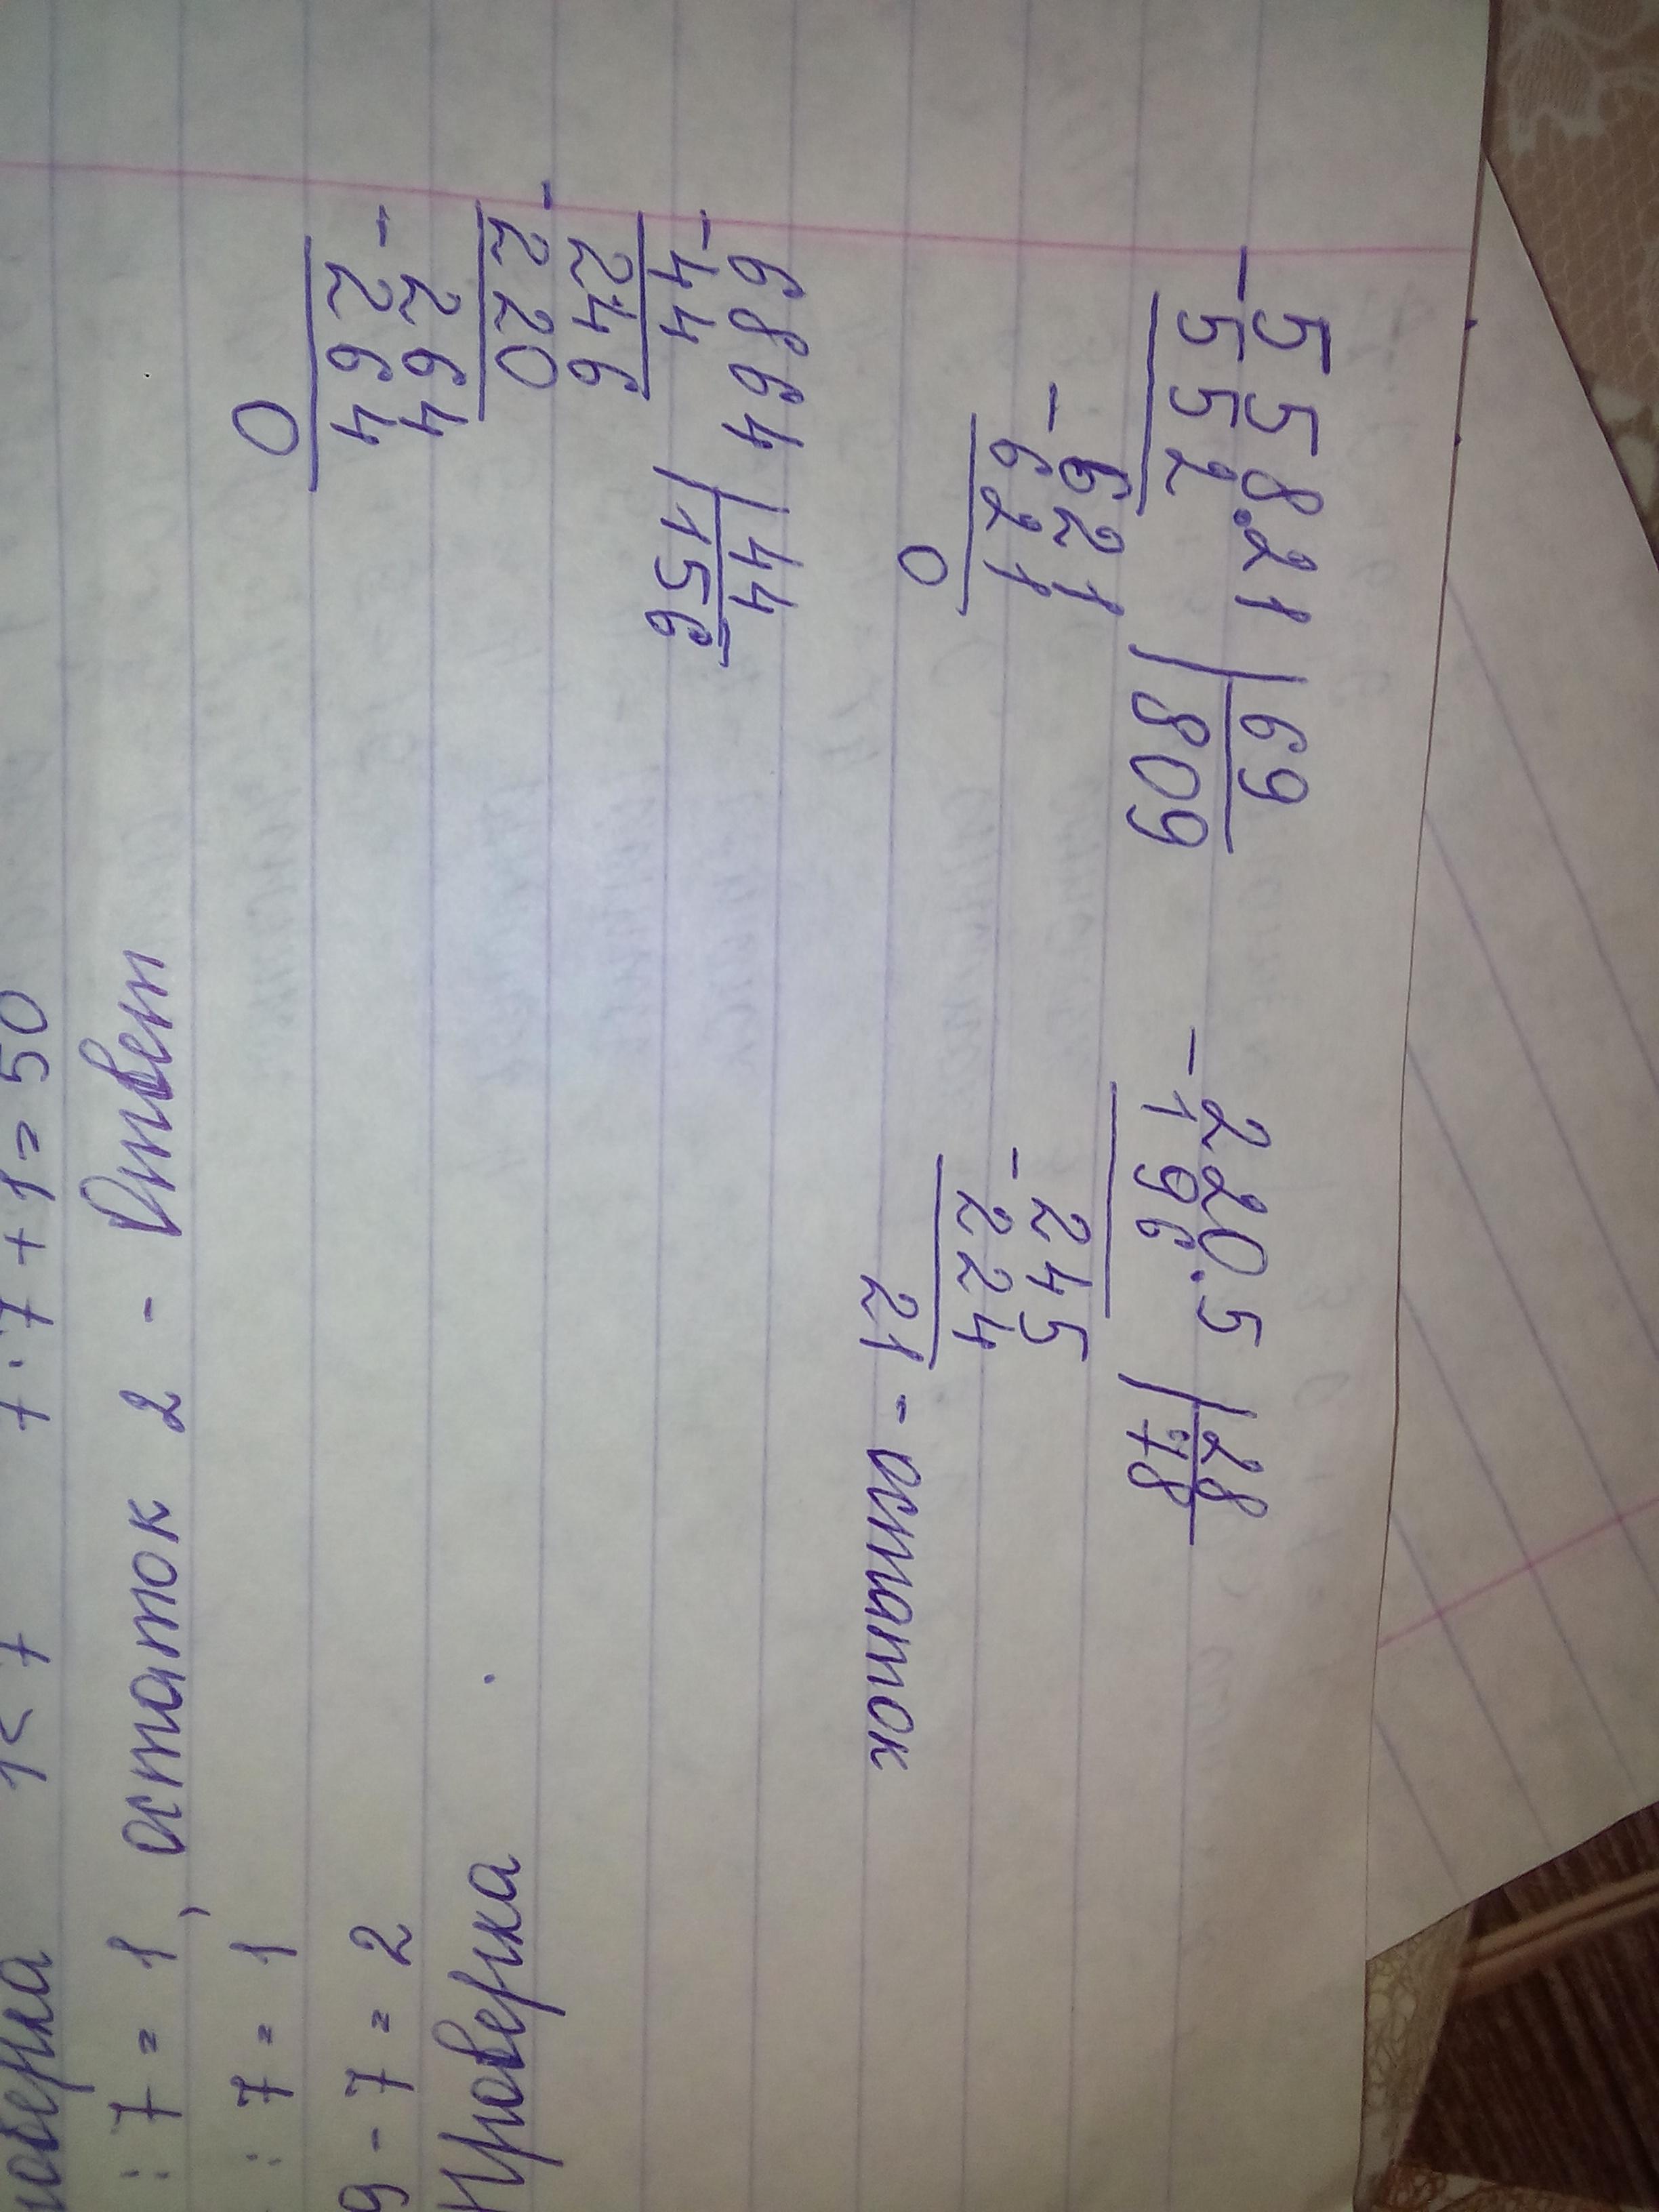 558.21 | 69
- 552 | 809
621
- 621
0
220.5 | 28
- 196 | 78
245
- 224
21 - остаток
6864 | 44
- 44 | 156
246
- 220
264
- 264
0
Проверка
9 - 7 = 2
: 7 = 1
: 7 = 1, остаток 2 - Ответ
1 < 7 7 · 7 + 1 = 50